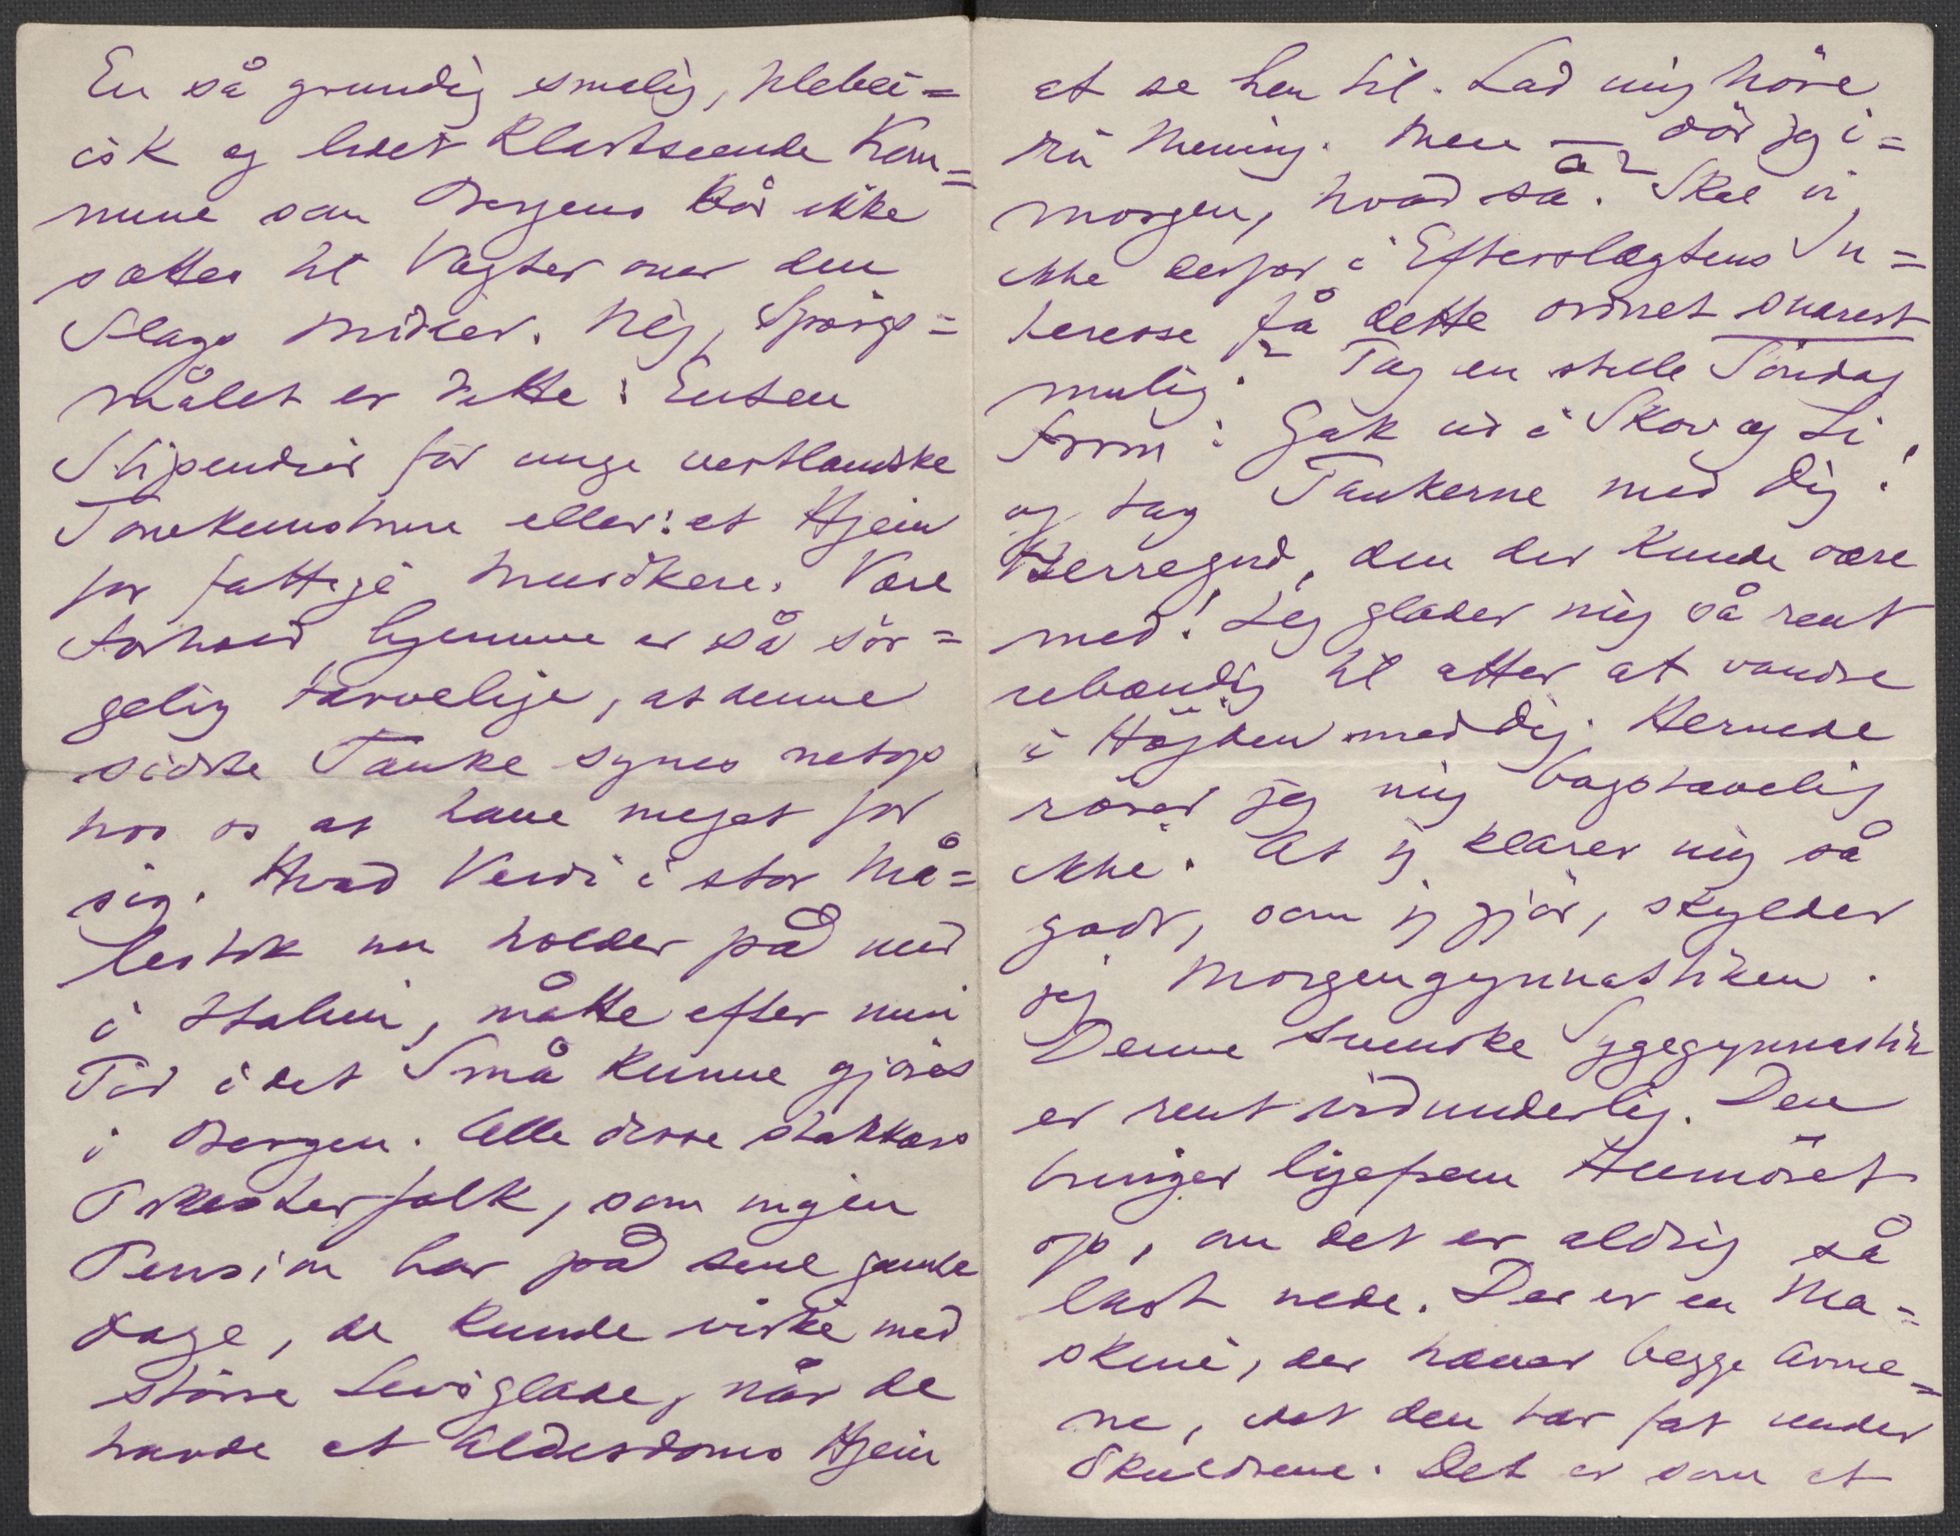 En så grundig smålig, plebei=
isk og lidet klartseende Kom=
mune som Bergens bör ikke
sættes til Vogter over den
Slags Midler. Nej, Spörgs=
målet er dette: Enten
Stipendier for unge vestlandske
Tonekunstnere eller: et Hjem
for fattige Musikere. Vore
Forhold hjemme er så sör=
gelig tarvelige, at denne
sidste Tanke synes netop
hos os at have meget for
sig. Hvad Verdi i stor Må=
lestok nu holder på med
i Italien, måtte efter min
Tid i det Små kunne gjöres
i Bergen. Alle disse stakkars
Orkesterfolk, som ingen
Pension har på sine gamle
Dage, de kunde virke med
större Livsglæde, når de
havde et Alderdoms Hjem
at se hen til. Lad mig höre
din Mening. Men — dör jeg i=
morgen, hvad så? Skal vi
ikke derfor i Efterslægtens In=
teresse få dette ordnet snarest
mulig? Tag en stille Söndag
Form: Gåk ud i Skov og Li,
og tag Tankerne med Dig!
Herregud, den der kunde være
med! Jeg glæder mig så rent
ubændig til atter at vandre
i Höjden med dig. Hernede
rörer jeg mig bogstavelig
ikke. At jeg klarer mig så
godt, som jeg gjör, skylder
jeg Morgengymnastiken.
Denne svenske Sygegymnastik
er rent vidunderlig. Den
bringer ligesom Humöret
op, om det er aldrig så
langt nede. Der er en Ma=
skine, der hæver begge Arme=
ne, idet den tar fat under
Skuldrene. Det er som et